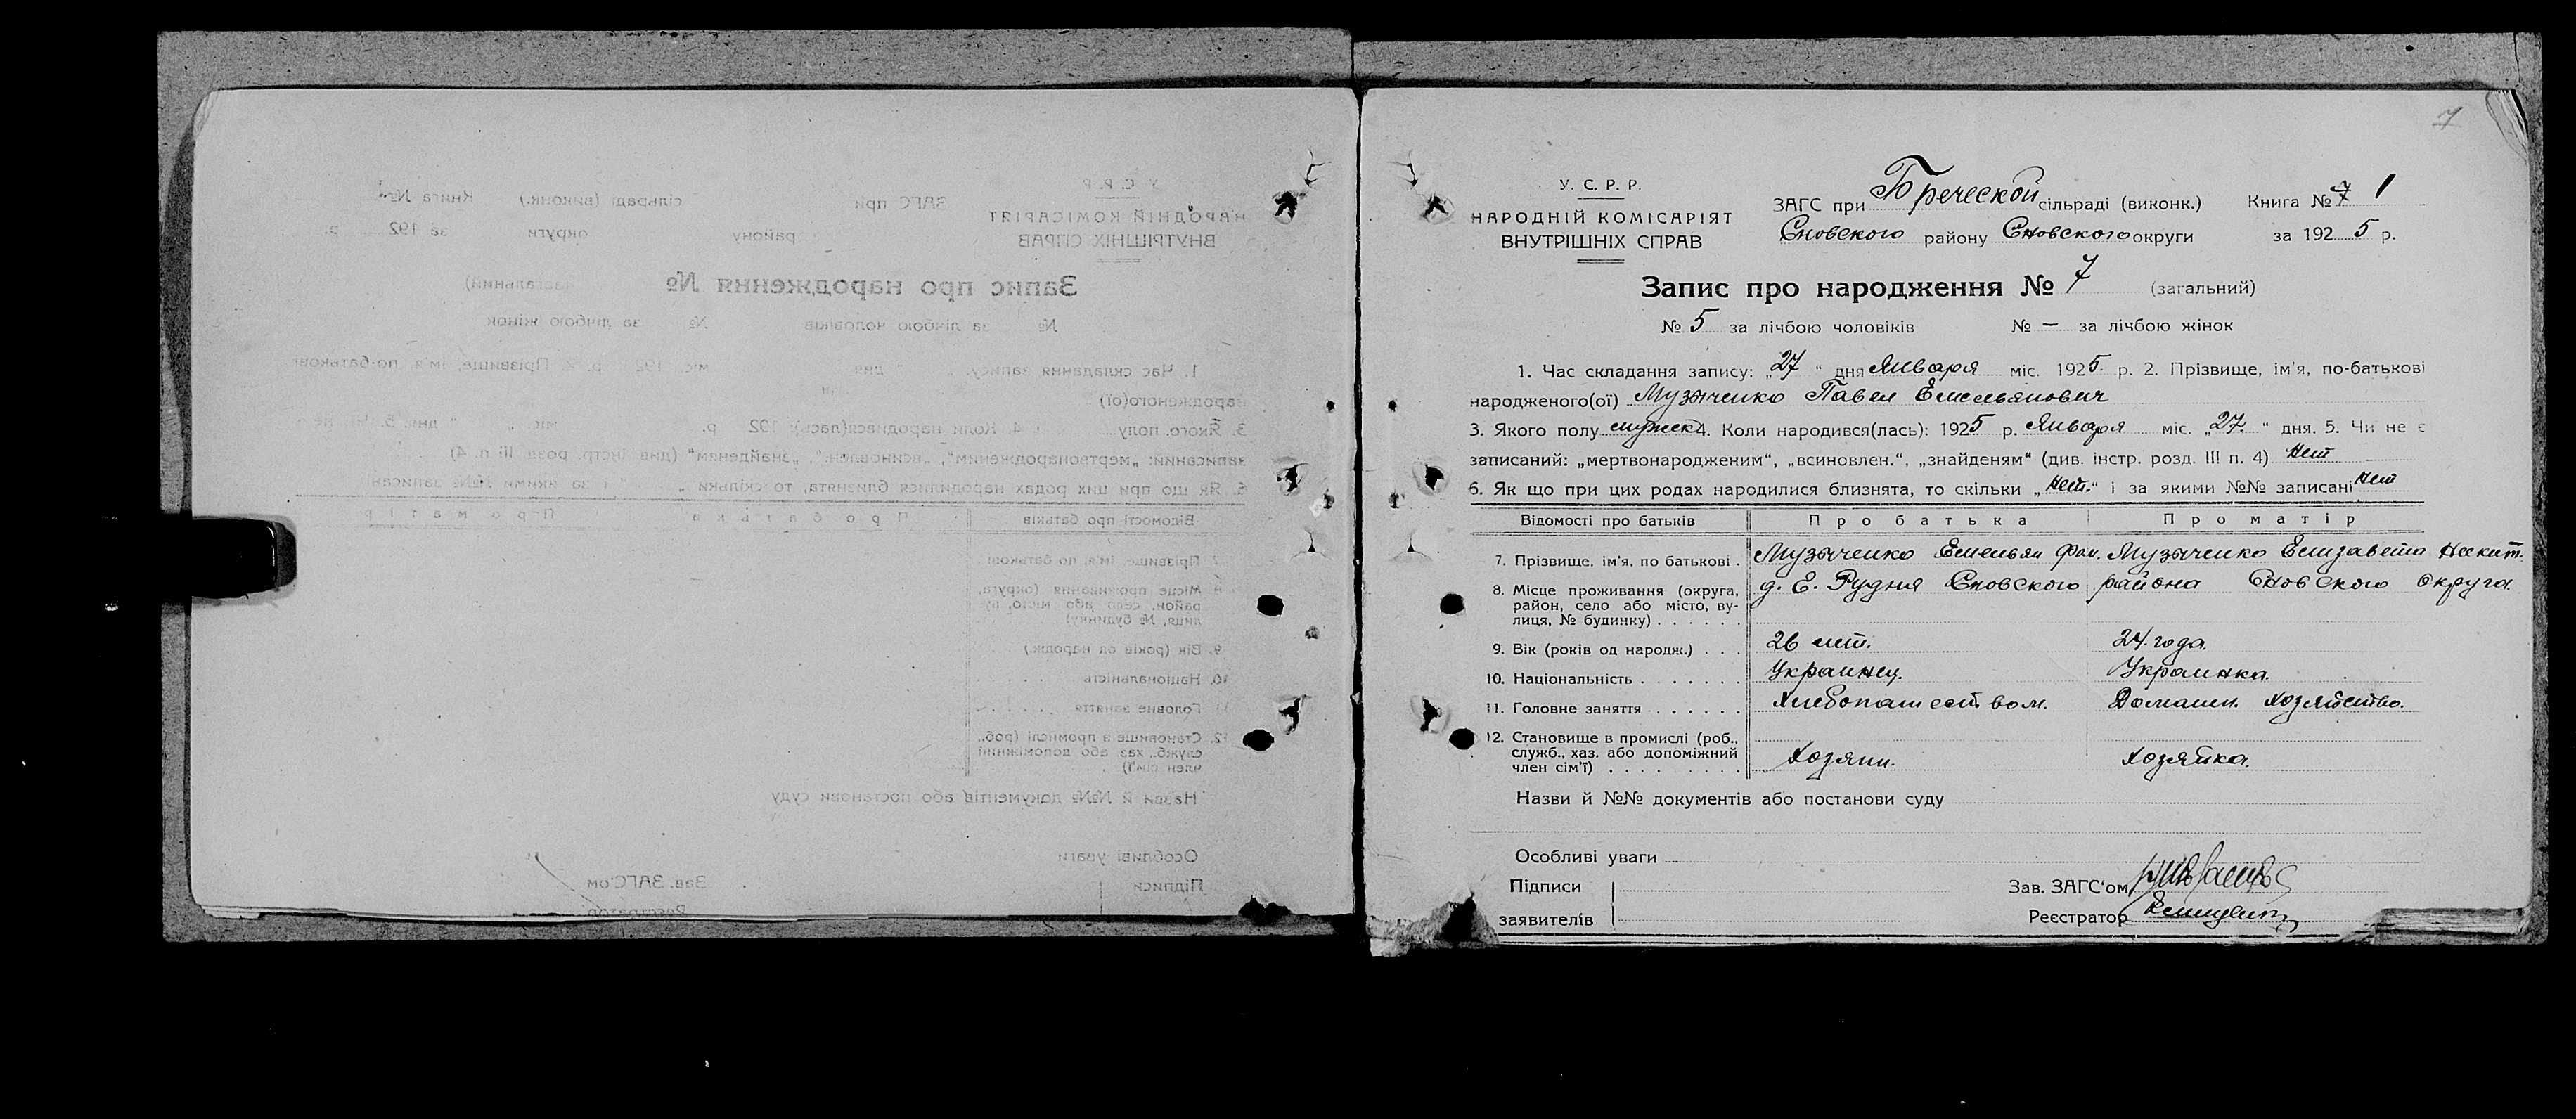 7
У. С. Р. Р.
НАРОДНІЙ КОМІСАРІЯТ
ВНУТРІШНІХ СПРАВ
ЗАГС при Бреческой сільраді (виконк.) Книга № 7 1
Сновского району Сновского округи за 1925 р.
Запис про народження № 7 (загальний)
№ 5 за лічбою чоловіків № — за лічбою жінок
1. Час складання запису: „27“ дня Января міс. 1925 р. 2. Прізвище, ім'я, по-батькові
народженого(ої) Музыченко Павел Емельянович
3. Якого полу мужск 4. Коли народився(лась): 1925 р. Января міс. „27.“ дня. 5. Чи не є
записаний: „мертвонародженим“, „всиновлен.“, „знайденям“ (див. інстр. розд. III п. 4) нет
6. Як що при цих родах народилися близнята, то скільки „нет.“ і за якими №№ записані нет
Відомості про батьків Про батька Про матір
7. Прізвище, ім'я, по батькові . Музыченко Емельян Музыченко Елизавета Никит.
8. Місце проживання (округа, д. Е. Рудня Сновского района Сновского Округа.
район, село або місто, ву-
лиця, № будинку) . . . . . .
9. Вік (років од народж.) . . . 26 лет. 24 года.
10. Національність . . . . . . . Украинец. Украинка.
11. Головне заняття . . . . . . Хлебопашеством. Домашн. хозяйство.
12. Становище в промислі (роб.,
служб., хаз. або допоміжний
член сім'ї) . . . . . . . . . Хозяин. Хозяйка.
Назви й №№ документів або постанови суду
Особливі уваги
Підписи Зав. ЗАГС'ом
заявителів Реєстратор